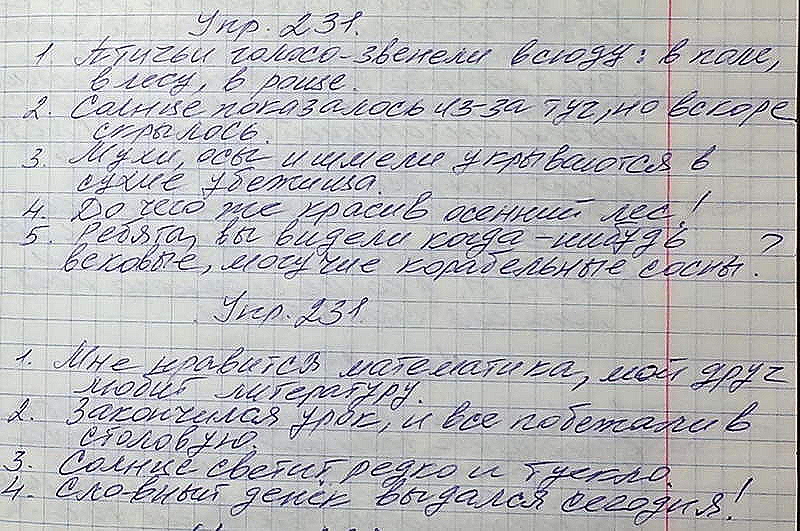 Упр. 231.
1 Птичьи голоса звенели всюду: в поле,
в лесу, в роще.
2. Солнце показалось из-за туч, но вскоре
скрылось.
3. Мухи, осы и шмели укрываются в
сухие убежища.
4. До чего же красив осенний лес!
5. Ребята, вы видели когда-нибудь
вековые, могучие корабельные сосны?
Упр. 231.
1. Мне нравится математика, мой друг
любит литературу.
2. Закончился урок, и все побежали в
столовую.
3. Солнце светит редко и тускло.
4. Славный денёк выдался сегодня!